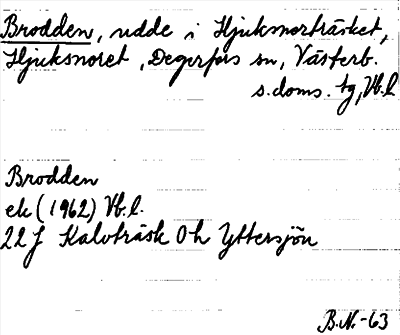 Brodden, udde i Hjuksmorträsket,
Hjuksnoret, Degerfors sn, Västerb.
s. doms. tg, Vb. l
Brodden
ek (1962) Vb. l.
22 J Kalvträsk 0h Yttersjön
B.N.-63